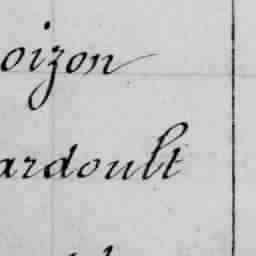 oizon
ardoult